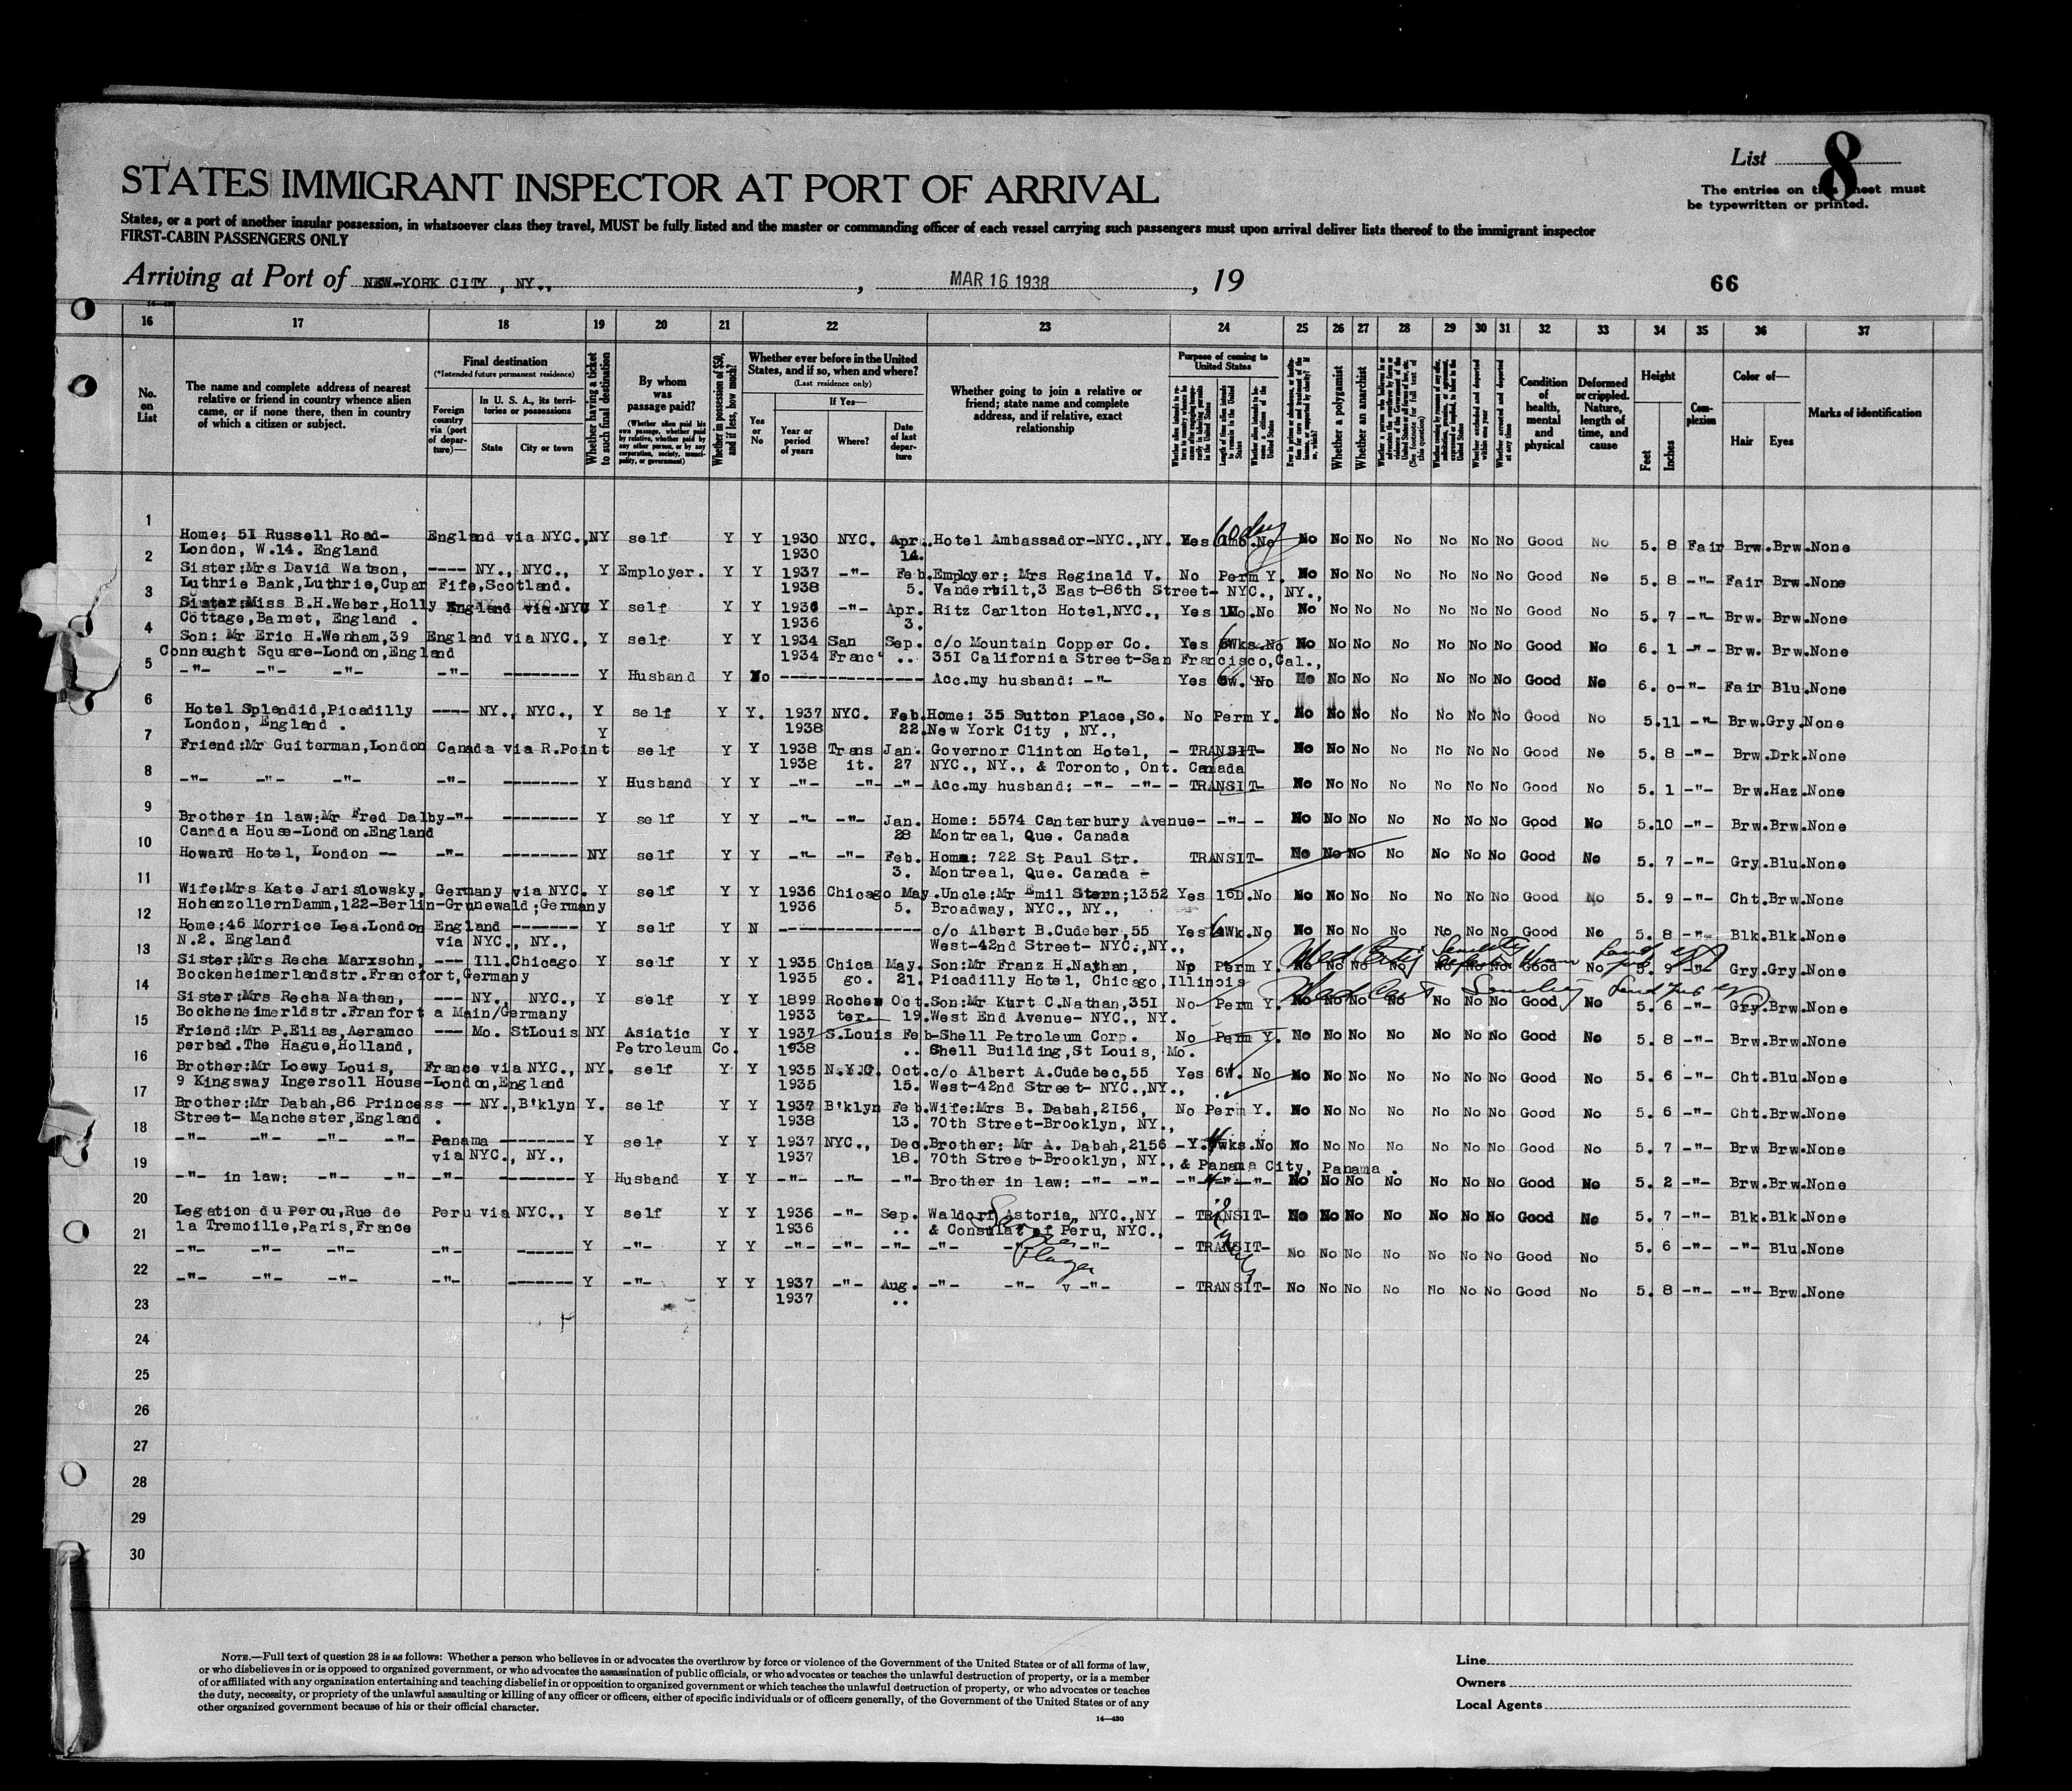 List 8
The entries on this sheet must
be typewritten or printed.
STATES IMMIGRANT INSPECTOR AT PORT OF ARRIVAL
States, or a port of another insular possession, in whatsoever class they travel, MUST be fully listed and the master or commanding officer of each vessel carrying such passengers must upon arrival deliver lists thereof to the immigrant inspector
FIRST-CABIN PASSENGERS ONLY
Arriving at Port of NEW-YORK CITY , NY., , MAR 16 1938 , 19 66
16 17 18 19 20 21 22 23 24 25 26 27 28 29 30 31 32 33 34 35 36 37
No. on List
The name and complete address of nearest relative or friend in country whence alien came, or if none there, then in country of which a citizen or subject.
Final destination
(*Intended future permanent residence)
Foreign country via (port of departure)—
In U. S. A., its territories or possessions
State City or town
Whether having a ticket to such final destination
By whom was passage paid?
(Whether alien paid his own passage, whether paid by relative, whether paid by any other person, or by any corporation, society, municipality, or government)
Whether in possession of $50, and if less, how much?
Whether ever before in the United States, and if so, when and where?
(Last residence only)
Yes or No
If Yes—
Year or period of years Where? Date of last departure
Whether going to join a relative or friend; state name and complete address, and if relative, exact relationship
Purpose of coming to United States
Whether a polygamist
Whether an anarchist
Condition of health, mental and physical
Deformed or crippled. Nature, length of time, and cause
Height
Feet Inches
Complexion
Color of—
Hair Eyes
Marks of identification
1
Home: 51 Russell Road- England via NYC., NY self Y Y 1930 NYC. Apr. Hotel Ambassador-NYC.,NY. Yes 1mo. No 60 days No No No No No No No Good No 5. 8 Fair Brw. Brw. None
London, W.14. England 1930 14.
2
Sister:Mrs David Watson, ---- NY., NYC., Y Employer. Y Y 1937 -"- Feb. Employer: Mrs Reginald V. No Perm Y. No No No No No No No Good No 5. 8 -"- Fair Brw. None
Luthrie Bank,Luthrie,Cupar Fife,Scotland. 1938 5. Vanderbilt,3 East-86th Street- NYC., NY.,
3
Sister:Miss B.H.Weber,Holly England via NYC Y self Y Y 1936 -"- Apr. Ritz Carlton Hotel,NYC., Yes 1Mo.No No No No No No No No Good No 5. 7 -"- Brw. Brw. None
Cottage,Barnet, England . 1936 3.
4
Son: Mr Eric H.Wenham,39 England via NYC., Y self Y Y 1934 San Sep. c/o Mountain Copper Co. Yes 6Wks.No No No No No No No No Good No 6. 1 -"- Brw. Brw. None
Connaught Square-London,England 1934 Franc .. 351 California Street-San Francisco,Cal.,
5
-"- -"- -"- -"- -------- Y Husband Y No --------------- Acc.my husband: -"- Yes 6w. No No No No No No No No Good No 6. 0 -"- Fair Blu. None
6
Hotel Splendid,Picadilly ---- NY., NYC., Y self Y Y. 1937 NYC. Feb. Home: 35 Sutton Place,So. No Perm Y. No No No No No No No Good No 5.11 -"- Brw. Gry. None
London, England . Y 1938 22. New York City , NY.,
7
Friend:Mr Guiterman,London Canada via R.Point self Y Y 1938 Trans Jan. Governor Clinton Hotel, - TRANSIT- No No No No No No No Good No 5. 8 -"- Brw. Drk. None
1938 it. 27 NYC., NY., & Toronto, Ont. Canada
8
-"- -"- -"- -"- -------- Y Husband Y Y -"- -"- -"- Acc.my husband: -"- -"- - TRANSIT- No No No No No No No Good No 5. 1 -"- Brw. Haz. None
9
Brother in law:Mr Fred Dalby -"- -------- Y self Y Y -"- -"- Jan. Home: 5574 Canterbury Avenue- -"- - No No No No No No No Good No 5.10 -"- Brw. Brw. None
Canada House-London.England 28 Montreal, Que. Canada
10
Howard Hotel, London -- -"- -------- NY self Y Y -"- -"- Feb. Home: 722 St Paul Str. TRANSIT- No No No No No No No Good No 5. 7 -"- Gry. Blu. None
3. Montreal, Que. Canada -
11
Wife:Mrs Kate Jarislowsky, Germany via NYC. Y self Y Y 1936 Chicago May. Uncle:Mr Emil Stern;1352 Yes 16D.No No No No No No No No Good No 5. 9 -"- Cht. Brw. None
HohenzollernDamm,122-Berlin-Grunewald;Germany 1936 5. Broadway, NYC., NY.,
12
Home:46 Morrice Lea.London England ------- Y self Y N --------------- c/o Albert B.Cudeber,55 Yes 6Wk.No No No No No No No No Good No 5. 8 -"- Blk. Blk. None
N.2. England via NYC., NY., West-42nd Street- NYC.,NY.,
13
Sister:Mrs Recha Marxsohn, --- Ill.Chicago Y self Y Y 1935 Chica May. Son:Mr Franz H.Nathan, No Perm Y. No No No No No No No Good No 5. 9 -"- Gry. Gry. None
Bockenheimerlandstr.Francfort,Germany 1935 go. 21. Picadilly Hotel, Chicago,Illinois
14
Sister:Mrs Recha Nathan, --- NY., NYC., Y self Y Y 1899 Roches Oct. Son:Mr Kurt C.Nathan,351 No Perm Y. No No No No No No No Good No 5. 6 -"- Gry. Brw. None
Bockheneimerldstr.Franfort a Main/Germany 1933 ter. 19. West End Avenue- NYC., NY.
15
Friend:Mr P.Elias,Aeramco --- Mo. StLouis NY Asiatic Y Y 1937 S.Louis Feb-Shell Petroleum Corp. No Perm Y. No No No No No No No Good No 5. 8 -"- Brw. Brw. None
perbad.The Hague,Holland, Petroleum Co. 1938 .. Shell Building,St Louis, Mo.
16
Brother:Mr Loewy Louis, France via NYC., NY. self Y Y 1935 N.Y.C. Oct. c/o Albert A.Cudebec,55 Yes 6W. No No No No No No No No Good No 5. 6 -"- Cht. Blu. None
9 Kingsway Ingersoll House-London,England 1935 15. West-42nd Street- NYC.,NY.,
17
Brother:Mr Dabah,86 Princess -- NY.,B'klyn Y. self Y Y 1937 B'klyn Feb. Wife:Mrs B. Dabah,2156, No Perm Y. No No No No No No No Good No 5. 6 -"- Cht. Brw. None
Street- Manchester,England . 1938 13. 70th Street-Brooklyn, NY.,
18
-"- -"- -"- -"- Panama -------- Y self Y Y 1937 NYC., Dec. Brother: Mr A. Dabah,2156 -Y. wks.No No No No No No No No Good No 5. 7 -"- Brw Brw. None
via NYC., NY., 1937 18. 70th Street-Brooklyn, NY., & Panama City, Panama .
19
-"- in law: -"- -"- -"- -------- Y Husband Y Y -"- -"- -"- Brother in law: -"- -"- -"- -"- -"- No No No No No No No Good No 5. 2 -"- Brw. Brw. None
20
Legation du Perou,Rue de Peru via NYC., Y self Y Y 1936 -"- Sep. Waldorf Astoria, NYC.,NY - TRANSIT- No No No No No No No Good No 5. 7 -"- Blk. Blk. None
la Tremoille,Paris,France 1936 .. & Consulat of Peru, NYC.,
21
-"- -"- -"- -"- ------ Y -"- Y Y -"- -"- -"- -"- -"- -"- - TRANSIT- No No No No No No No Good No 5. 6 -"- -"- Blu. None
22
-"- -"- -"- -"- ------- Y -"- Y Y 1937 -"- Aug. -"- -"- -"- - TRANSIT- No No No No No No No Good No 5. 8 -"- -"- Brw. None
1937 ..
23
24
25
26
27
28
29
30
NOTE.—Full text of question 28 is as follows: Whether a person who believes in or advocates the overthrow by force or violence of the Government of the United States or of all forms of law,
or who disbelieves in or is opposed to organized government, or who advocates the assassination of public officials, or who advocates or teaches the unlawful destruction of property, or is a member
of or affiliated with any organization entertaining and teaching disbelief in or opposition to organized government or which teaches the unlawful destruction of property, or who advocates or teaches
the duty, necessity, or propriety of the unlawful assaulting or killing of any officer or officers, either of specific individuals or of officers generally, of the Government of the United States or of any
other organized government because of his or their official character.
14—430
Line
Owners
Local Agents